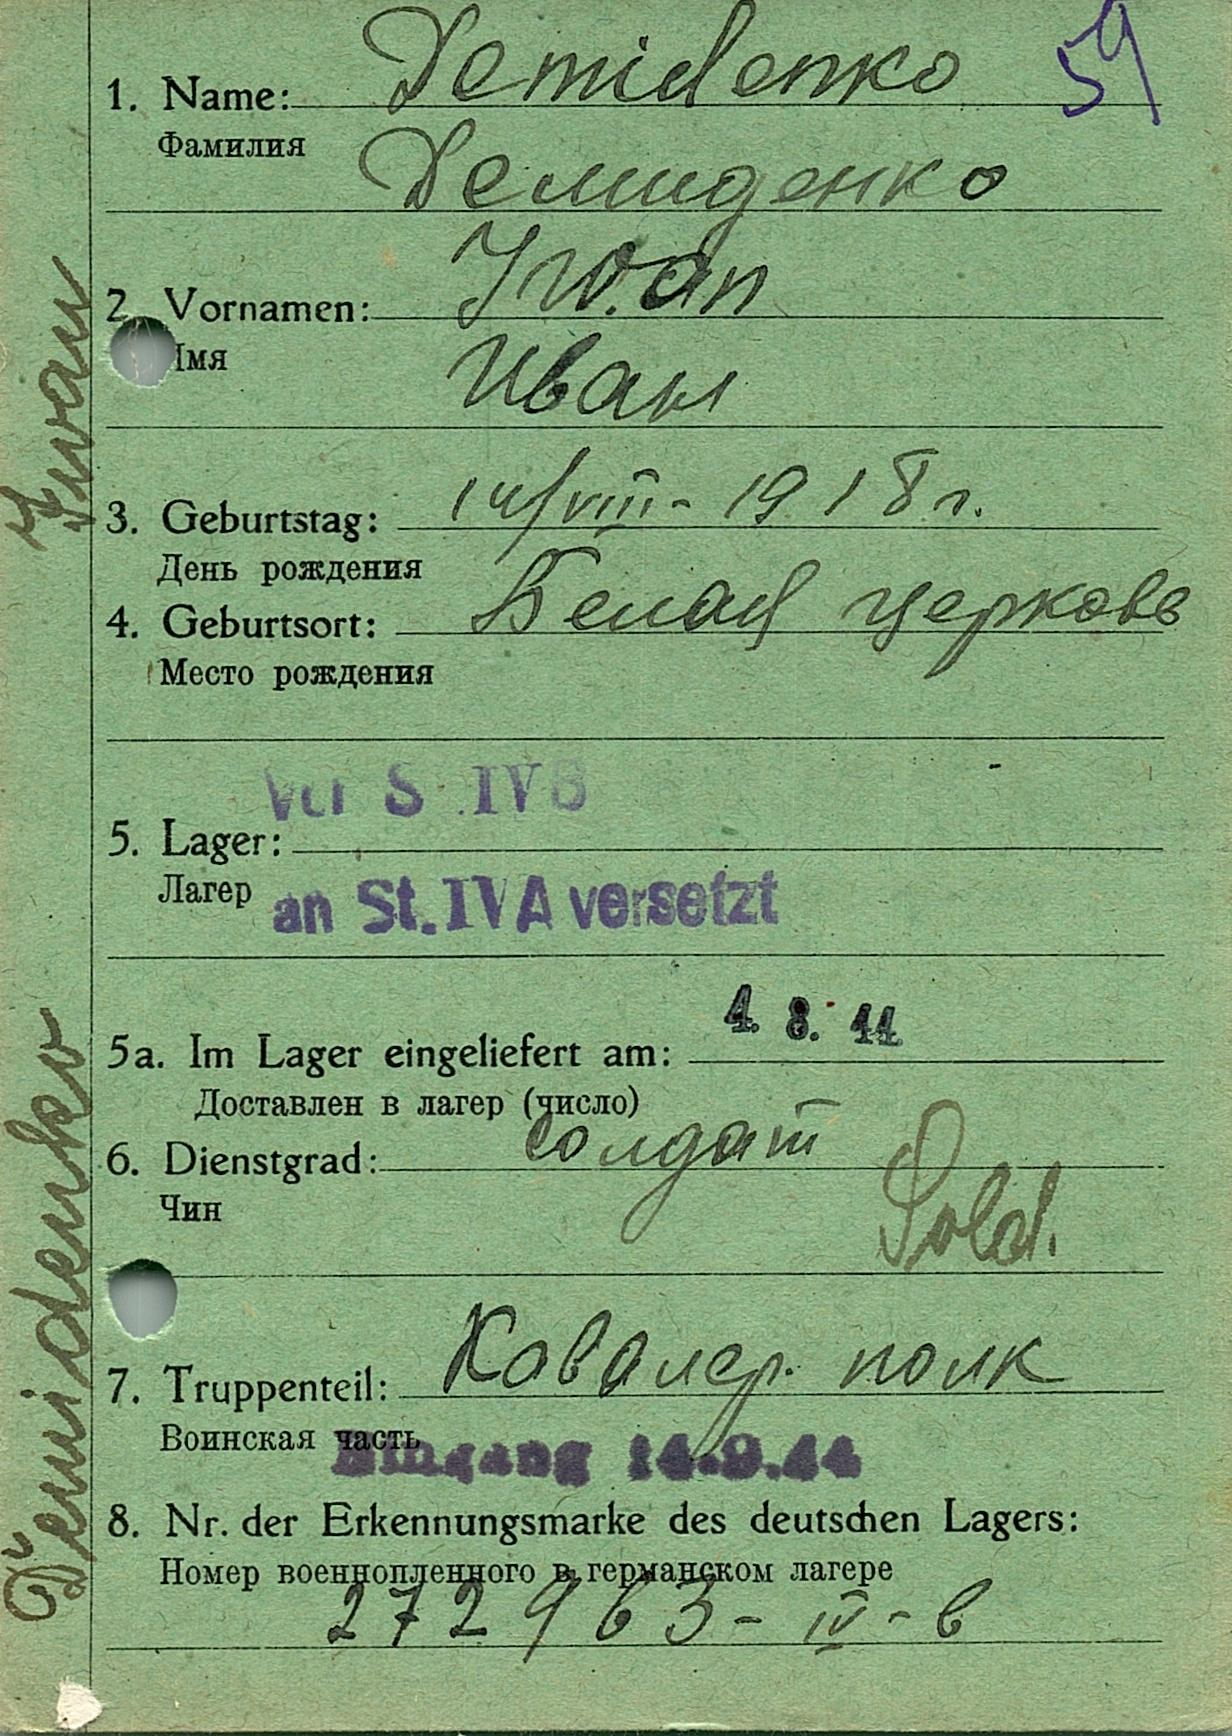 1. Name: Demidenko 59
Фамилия Демиденко
2. Vornamen: Iwan
Имя Иван
3. Geburtstag: 14/VIII - 1918 г.
День рождения
4. Geburtsort: Белая церковь
Место рождения
Vor S .IVB
5. Lager:
Лагер an St. IVA versetzt
5a. Im Lager eingeliefert am: 4. 8. 44
Доставлен в лагер (число)
6. Dienstgrad: солдат
Чин Sold.
7. Truppenteil: Ковалер. полк
Воинская часть Eingang 14.9.44
8. Nr. der Erkennungsmarke des deutschen Lagers:
Номер военнопленного в германском лагере
272963 - IV - в
Demidenko Iwan